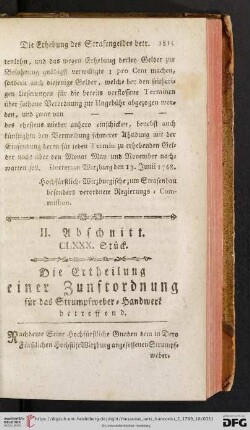 Die Erhebung des Strasengeldes betr. 1811
tenlohn, und das wegen Erhebung derley Gelder zur
Belohnung gnädigst verwilligte 1 pro Cent machen,
sodann auch diejenige Gelder, welche bey den
gen Lieferungen für die bereits verflossene Terminen
über sothane Verordnung zur Ungebühr abgezogen wor-
den, und zwar von
des ehesten wieder anhero einschicken, benebst auch
künftighin den Vermeidung schwerer Ahndung mit der
Einsendung deren für jeden Termin zu erhebenden Gel-
der nicht über den Monat May und November nach-
warten soll. Decretum Wirzburg den 13. Junii 1768.
Hochfürstlich-Wirzburgische zum Strasenbau
besonders verordnete Regierungs-Com-
mission.
II. Abschnitt.
CLXXX. Stück.
Die Ertheilung
einer Zunftordnung
für das Strumpfweber-Handwerk
betreffend.
Nachdeme Seine Hochfürstliche Gnaden dem in Dero
Fürstlichen Hochstift Wirzburg angesessenen Strumpf-
weber-